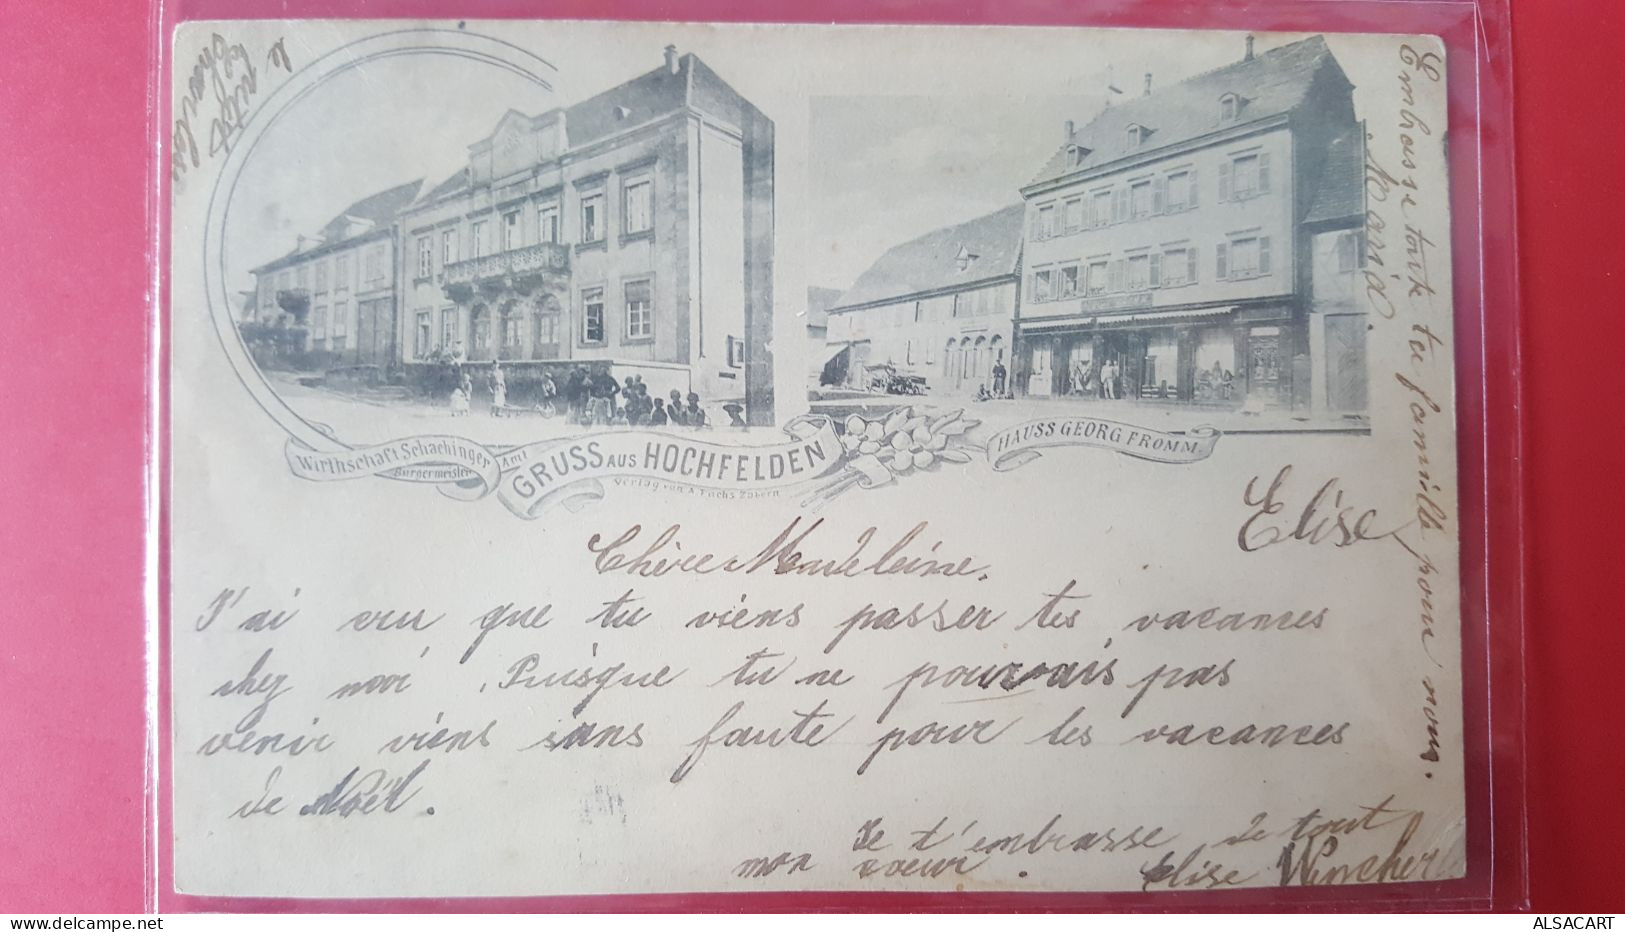 Wirthschaft Schachinger
Burgermeister
Amt
GRUSS AUS HOCHFELDEN
Verlag von A Fuchs Zabern
HAUSS GEORG FROMM.
Elise
Chère Madeleine.
J'ai cru que tu viens passer tes vacances
chez moi. Puisque tu ne pouvais pas
venir viens sans faute pour les vacances
de Noël.
Je t'embrasse de tout
mon coeur. Elise Wincher
Embrasse toute ta famille pour nous.
Maria.
le petit
Charles
ALSACART